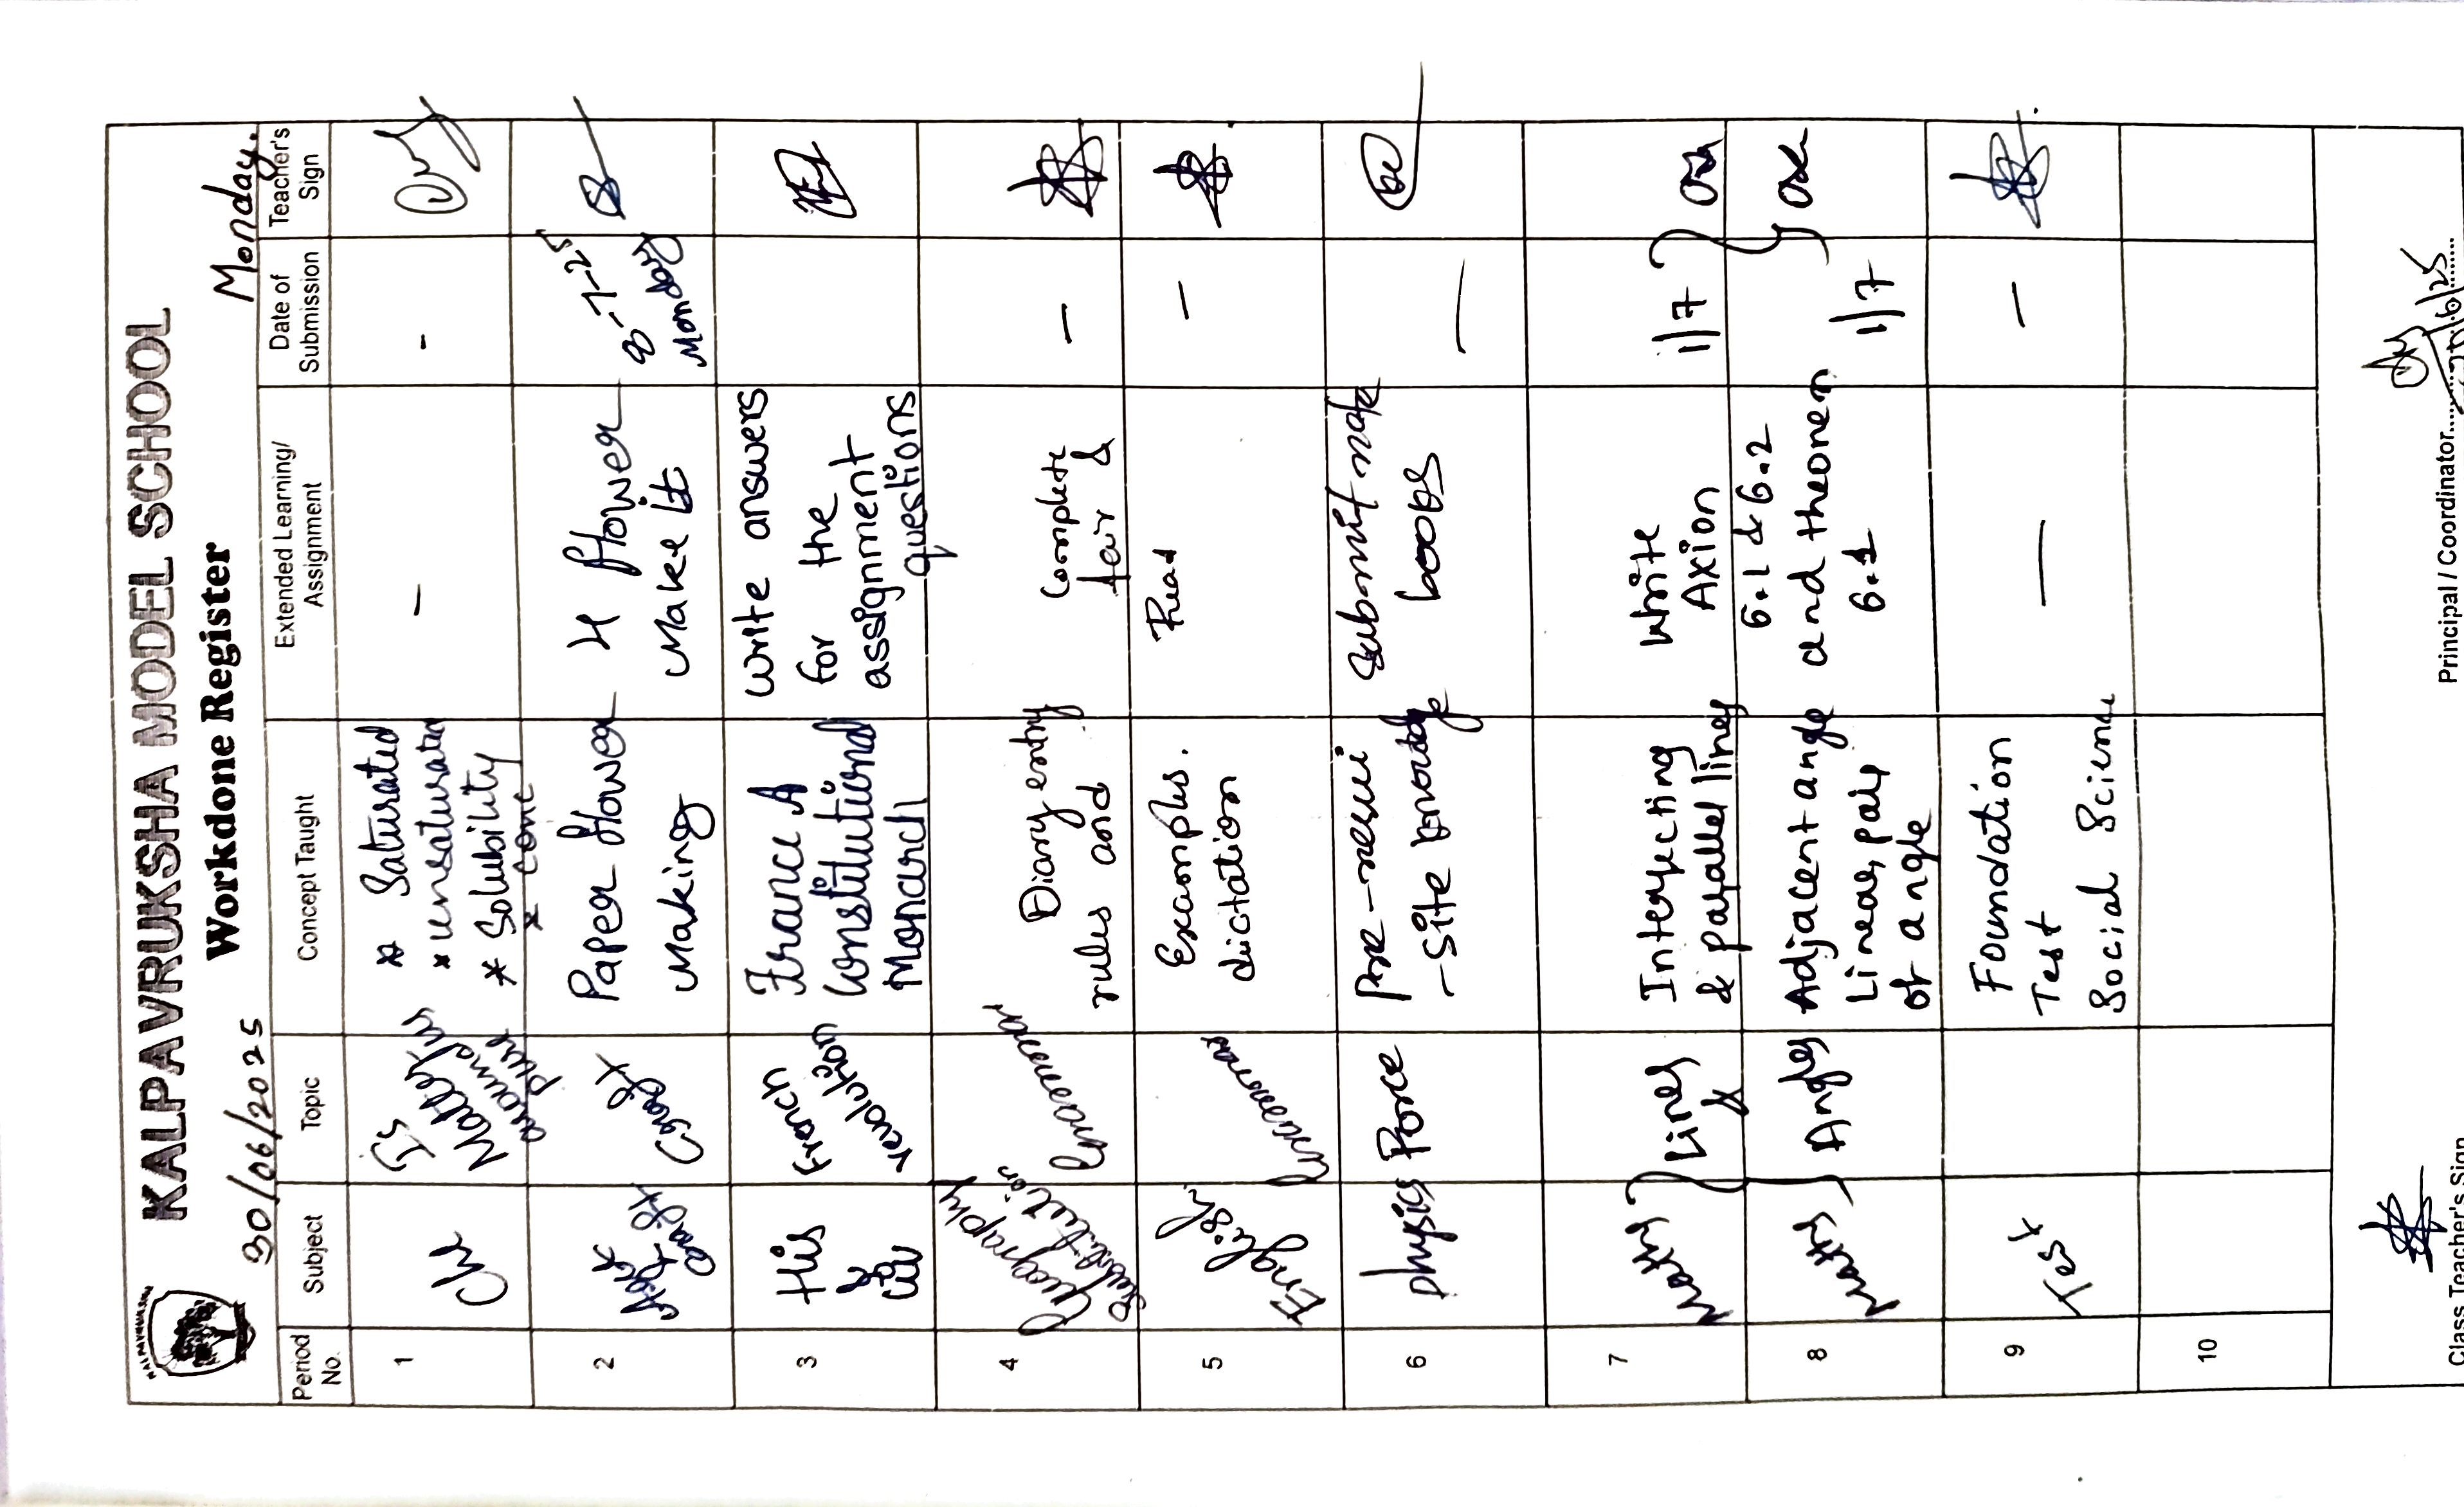 KALPAVRUKSHA MODEL SCHOOL
Workdone Register
30/06/2025
Monday.
Period No.
Subject
Topic
Concept Taught
Extended Learning/ Assignment
Date of Submission
Teacher's Sign
1
Che
Is
Matter
around us
pure
* Saturated
* unsaturated
* Solubility
* conc
-
-
2
Art
Craft
Craft
Paper flower
Making
4 flower
Make it
8-7-25
Monday
3
His
&
civ
French
revolution
France A
constitutional
Monarch
write answers
for the
assignment
questions
4
Geography
Substitution
Grammar
Diary entry
rules and
Complete
fair &
-
5
English
Grammar
Examples.
dictation
Read
-
6
Physics
Force
Pre-requi
-site knowledge
Submit note
books
-
7
Maths
Lines
&
Intersecting
& parallel lines
Write
Axion
1/7
8
Maths
Angles
Adjacent angle
Linear pair
of angle
6.1 & 6.2
and theoner
6.1
1/7
9
Test
Foundation
Test
Social Science
-
-
10
Class Teacher's Sign
Principal / Coordinator